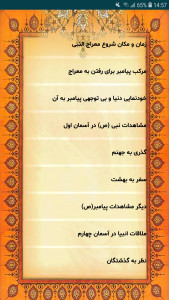 65% 14:57
زمان و مکان شروع معراج النبی
مرکب پیامبر برای رفتن به معراج
خودنمایی دنیا و بی توجهی پیامبر به آن
مشاهدات نبی (ص) در آسمان اول
گذری به جهنم
سفر به بهشت
دیگر مشاهدات پیامبر(ص)
ملاقات انبیا در آسمان چهارم
نظر به گذشتگان